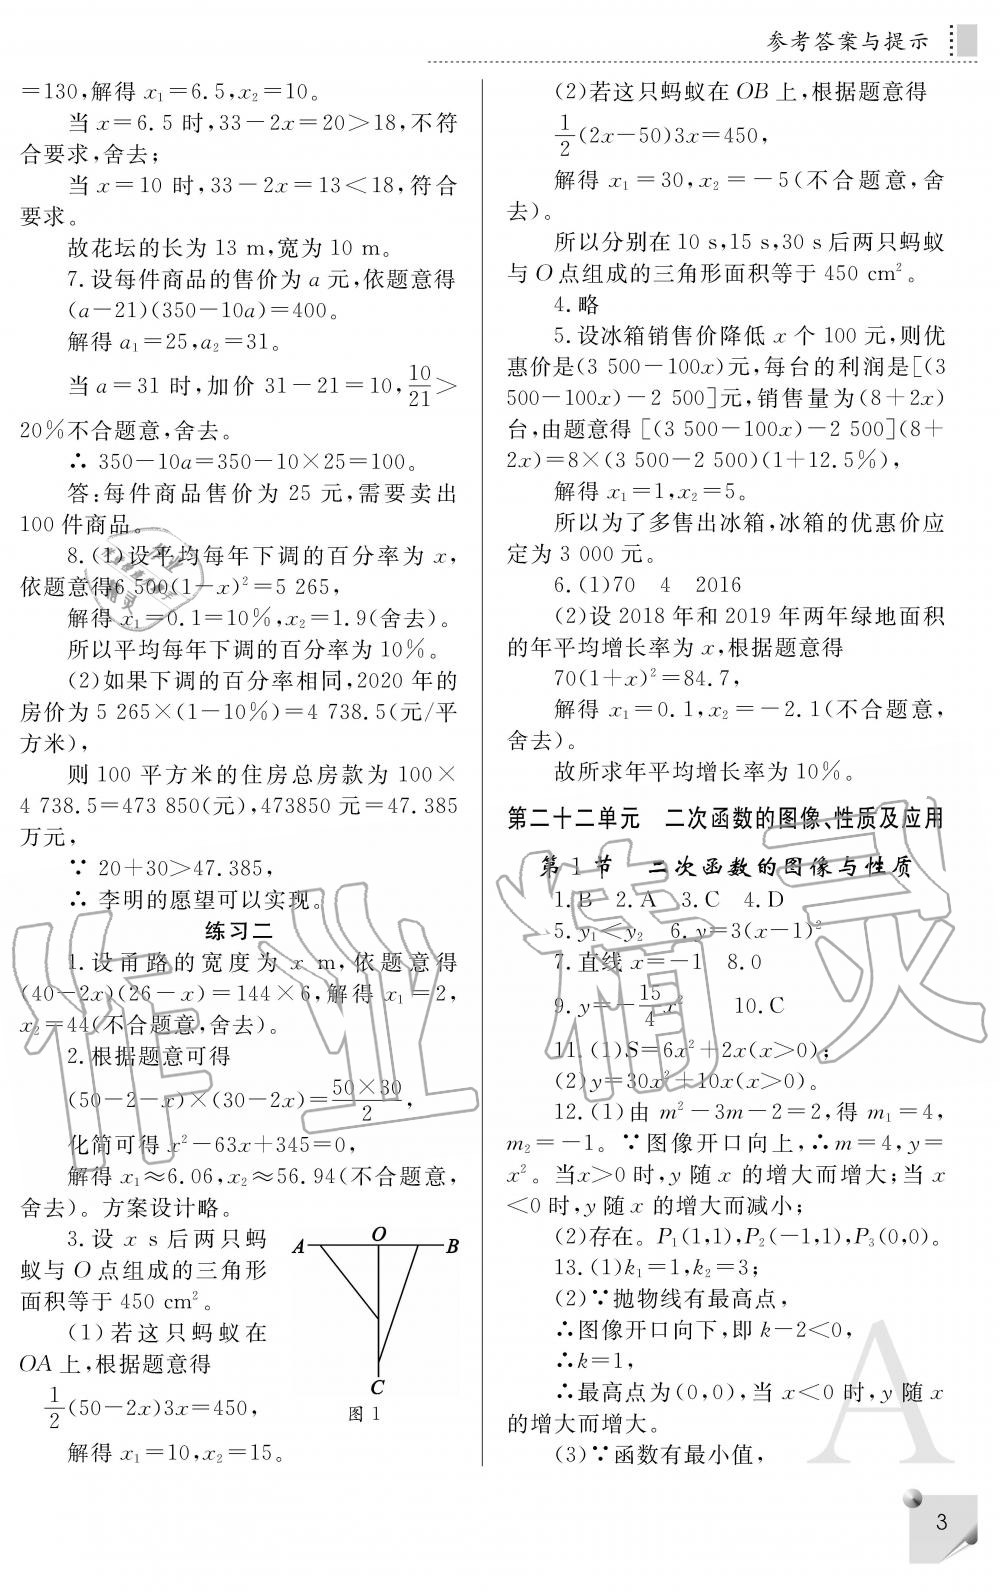 参考答案与提示
=130,解得 x₁=6.5,x₂=10。
当 x=6.5 时,33-2x=20>18,不符
合要求,舍去;
当 x=10 时,33-2x=13<18,符合
要求。
故花坛的长为 13 m,宽为 10 m。
7.设每件商品的售价为 a 元,依题意得
(a-21)(350-10a)=400。
解得 a₁=25,a₂=31。
当 a=31 时,加价 31-21=10,10/21>
20%不合题意,舍去。
∴ 350-10a=350-10×25=100。
答:每件商品售价为 25 元,需要卖出
100 件商品。
8.(1)设平均每年下调的百分率为 x,
依题意得6 500(1-x)²=5 265,
解得 x₁=0.1=10%,x₂=1.9(舍去)。
所以平均每年下调的百分率为 10%。
(2)如果下调的百分率相同,2020 年的
房价为 5 265×(1-10%)=4 738.5(元/平
方米),
则 100 平方米的住房总房款为 100×
4 738.5=473 850(元),473850 元=47.385
万元,
∵ 20+30>47.385,
∴ 李明的愿望可以实现。
练习二
1.设甬路的宽度为 x m,依题意得
(40-2x)(26-x)=144×6,解得 x₁=2,
x₂=44(不合题意,舍去)。
2.根据题意可得
(50-2-x)×(30-2x)=50×30/2,
化简可得 x²-63x+345=0,
解得 x₁≈6.06,x₂≈56.94(不合题意,
舍去)。方案设计略。
3.设 x s 后两只蚂
蚁与 O 点组成的三角形
面积等于 450 cm²。
(1)若这只蚂蚁在
OA 上,根据题意得
1/2(50-2x)3x=450,
解得 x₁=10,x₂=15。
A O B
C
图 1
(2)若这只蚂蚁在 OB 上,根据题意得
1/2(2x-50)3x=450,
解得 x₁=30,x₂=-5(不合题意,舍
去)。
所以分别在 10 s,15 s,30 s 后两只蚂蚁
与 O 点组成的三角形面积等于 450 cm²。
4.略
5.设冰箱销售价降低 x 个 100 元,则优
惠价是(3 500-100x)元,每台的利润是[(3
500-100x)-2 500]元,销售量为(8+2x)
台,由题意得 [(3 500-100x)-2 500](8+
2x)=8×(3 500-2 500)(1+12.5%),
解得 x₁=1,x₂=5。
所以为了多售出冰箱,冰箱的优惠价应
定为 3 000 元。
6.(1)70 4 2016
(2)设 2018 年和 2019 年两年绿地面积
的年平均增长率为 x,根据题意得
70(1+x)²=84.7,
解得 x₁=0.1,x₂=-2.1(不合题意,
舍去)。
故所求年平均增长率为 10%。
第二十二单元 二次函数的图像、性质及应用
第 1 节 二次函数的图像与性质
1.B 2.A 3.C 4.D
5.y₁<y₂ 6.y=3(x-1)²
7.直线 x=-1 8.0
9.y=-15/4x² 10.C
11.(1)S=6x²+2x(x>0);
(2)y=30x²+10x(x>0)。
12.(1)由 m²-3m-2=2,得 m₁=4,
m₂=-1。∵图像开口向上,∴m=4,y=
x²。当x>0 时,y 随 x 的增大而增大;当 x
<0 时,y 随 x 的增大而减小;
(2)存在。P₁(1,1),P₂(-1,1),P₃(0,0)。
13.(1)k₁=1,k₂=3;
(2)∵抛物线有最高点,
∴图像开口向下,即 k-2<0,
∴k=1,
∴最高点为(0,0),当 x<0 时,y 随 x
的增大而增大。
(3)∵函数有最小值,
3
作业精灵
A